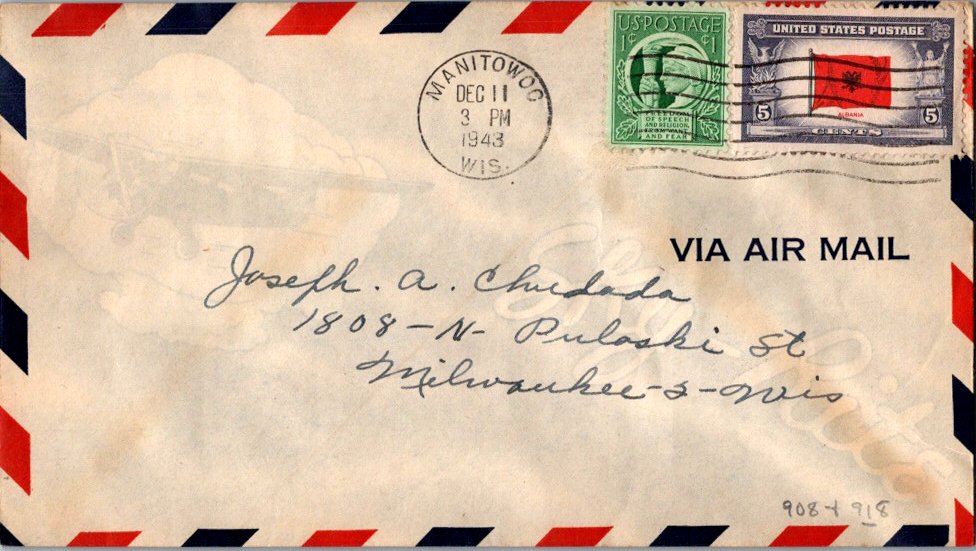 MANITOWOC
DEC 11
3 PM
1943
WIS.
U.S. POSTAGE
1¢ ¢1
FREEDOM
OF SPEECH
AND RELIGION,
FROM WANT
AND FEAR
UNITED STATES POSTAGE
ALBANIA
5 CENTS 5
VIA AIR MAIL
Joseph. A. Chudada
1808-N- Pulaski St
Milwaukee-2-Wis
908+918